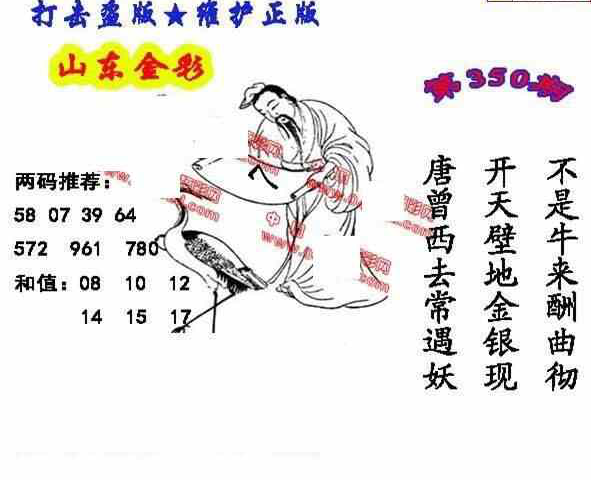 打击盗版★维护正版
山东金彩
第350期
两码推荐：
58 07 39 64
572 961 780
和值：08 10 12
14 15 17
不是牛来酬曲彻
开天壁地金银现
唐曾西去常遇妖